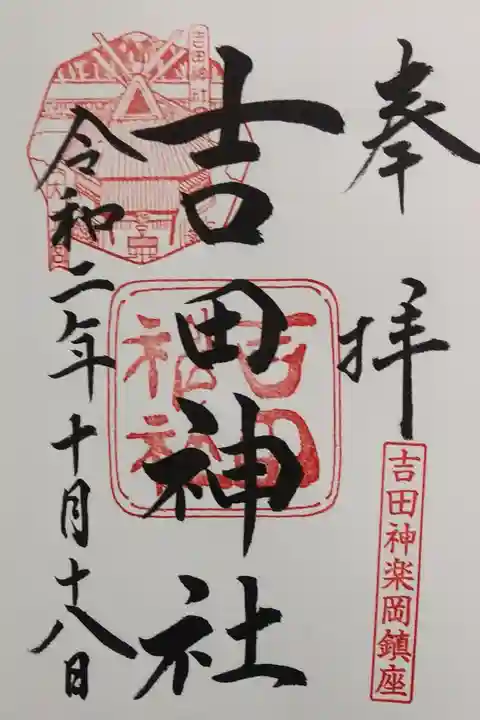 奉拝
吉田神楽岡鎮座
吉田神社
吉田神社
吉田神社
令和二年十月十八日